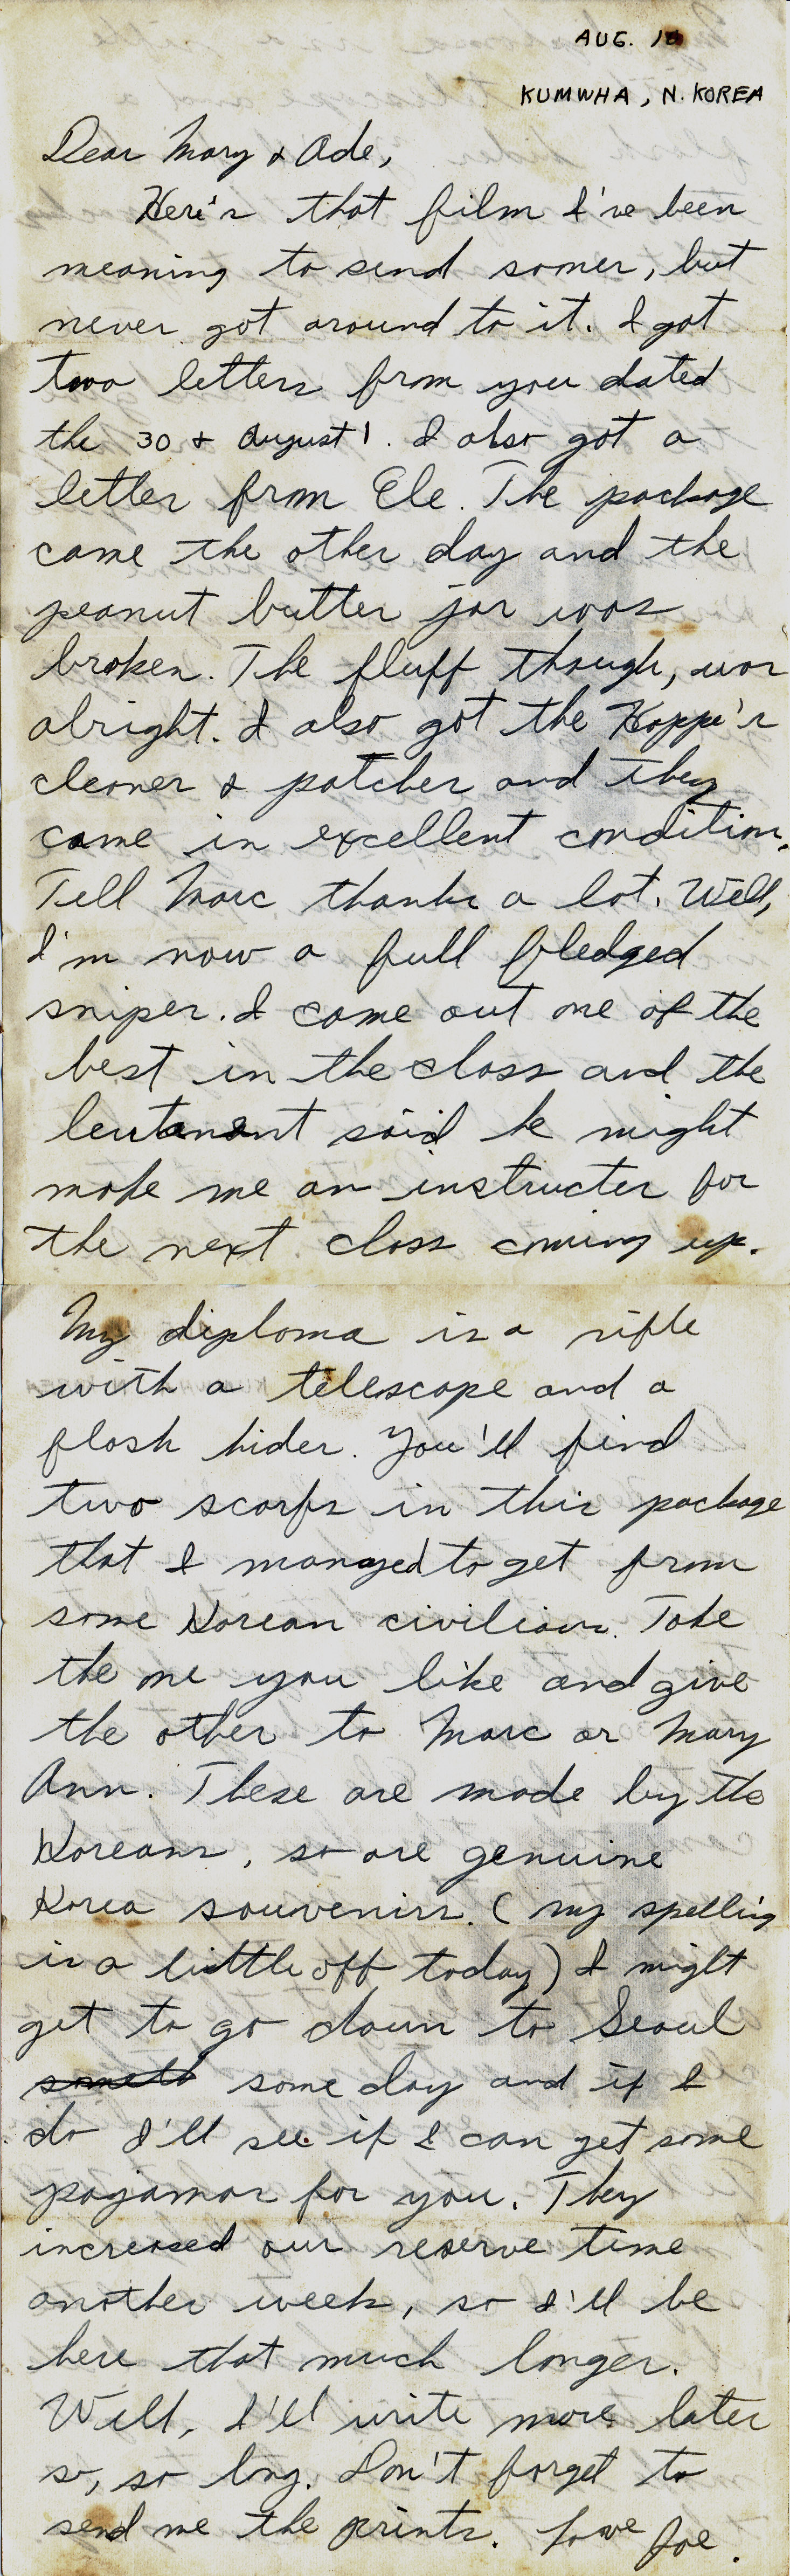 AUG. 10
KUMWHA, N. KOREA
Dear Mary & Ade,
Here's that film I've been
meaning to send somer, but
never got around to it. I got
two letters from you dated
the 30 & August 1. I also got a
letter from Ele. The package
came the other day and the
peanut butter jar was
broken. The fluff though, was
alright. I also got the Hoppe's
cleaner & patches and they
came in excellent condition.
Tell Marc thanks a lot. Well,
I'm now a full fledged
sniper. I came out one of the
best in the class and the
leutenant said he might
make me an instructer for
the next class coming up.
My diploma is a rifle
with a telescope and a
flash hider. You'll find
two scarfs in this package
that I managed to get from
some Korean civilians. Take
the one you like and give
the other to Marc or Mary
Ann. These are made by the
Koreans, so are genuine
Korea souvenirs. (my spelling
is a little off today) I might
get to go down to Seoul
some day and if I
do I'll see if I can get some
pajamas for you. They
increased our reserve time
another week, so I'll be
here that much longer.
Well, I'll write more later
so, so long. Don't forget to
send me the prints. Love Joe.